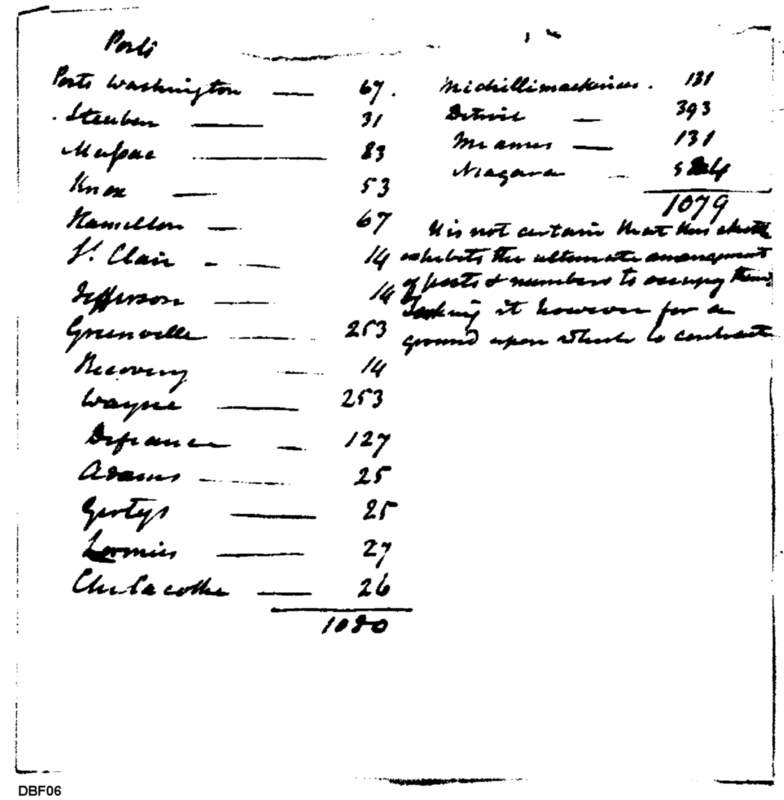 Posts
Ports Washington — 67.
Steuben — 31
Massac — 83
Knox — 53
Hamilton — 67
St. Clair - — 14
Jefferson — 14
Greenville — 253
Recovery — 14
Wayne — 253
Defiance — 127
Adams — 25
Girtys — 25
Lormies — 27
Chilacothe — 26
1080
Michillimackinac. 131
Detroit — 393
Miamis — 131
Niagara —
1079
It is not certain that this sketch
exhibits the ultimate arrangement
of posts & numbers to occupy them
taking it however for a
ground upon which to contract
DBF06